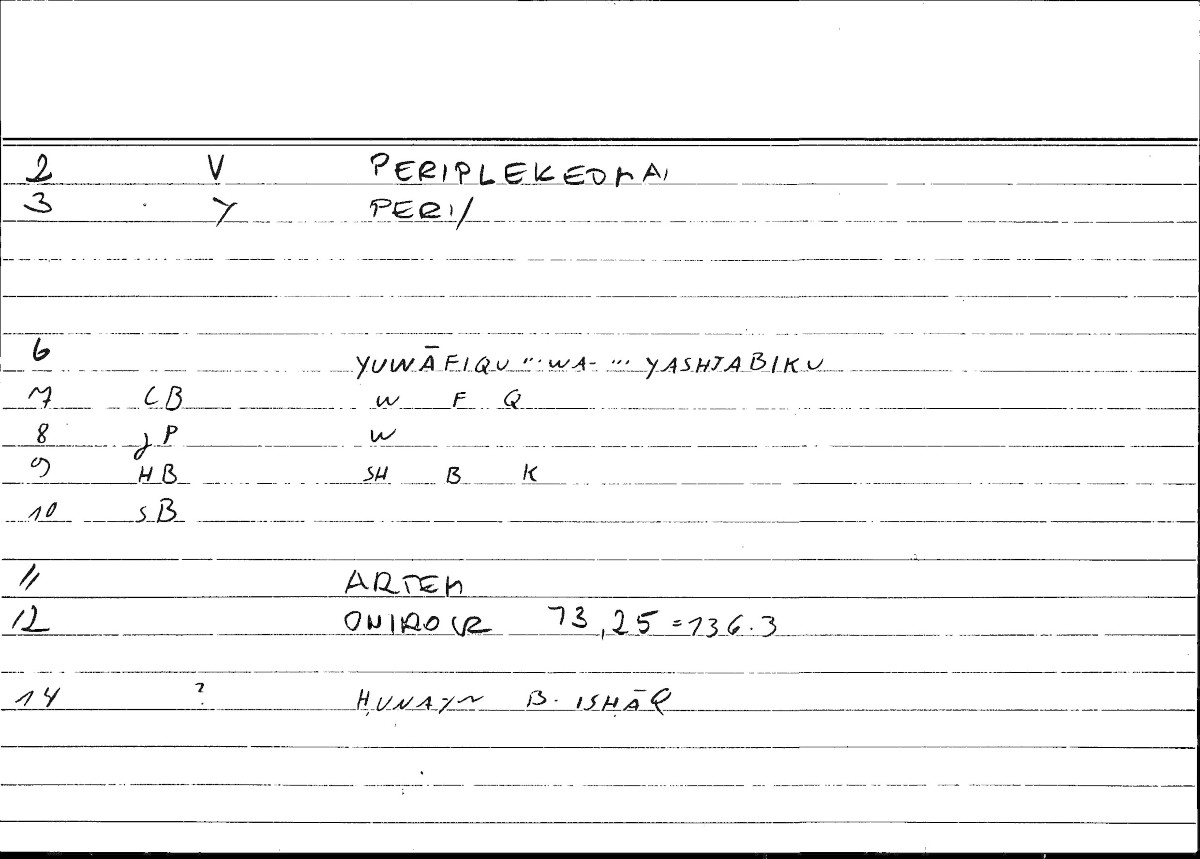 2 V PERIPLEKEOMAI
3 Y PERI/
6 YUWĀFIQU ... WA- ... YASHTABIKU
7 CB W F Q
8 JP W
9 HB SH B K
10 SB
11 ARTEM
12 ONIROCR 73,25 = 136.3
14 ? ḤUNAYN B. ISḤĀQ